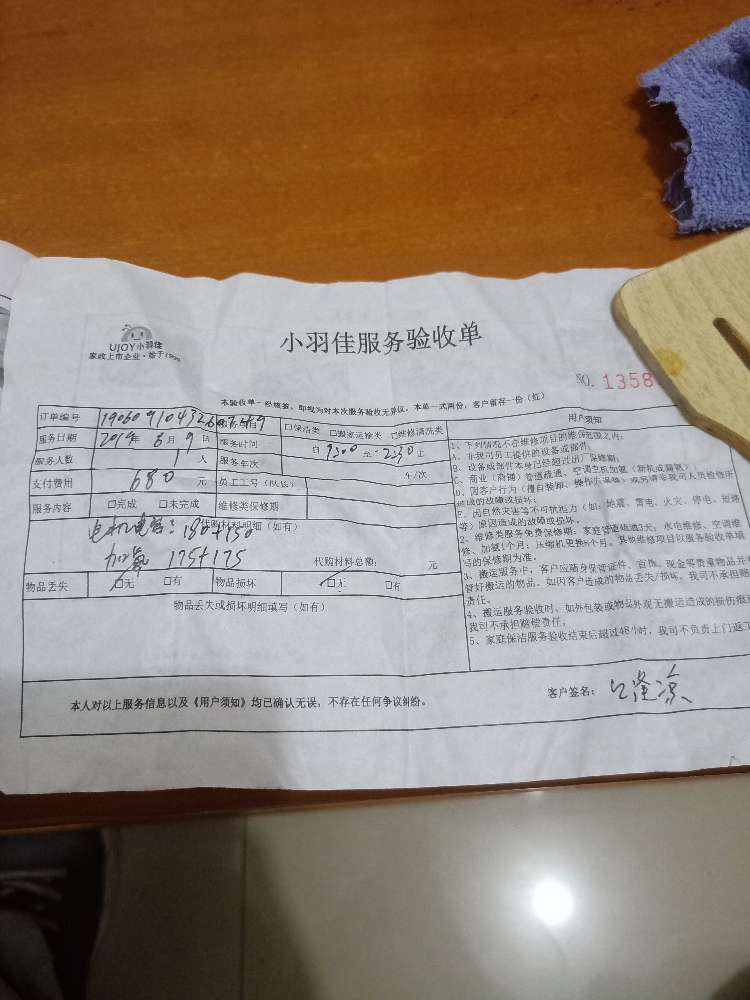 UJOY小羽佳
家政上市企业·始于1996
小羽佳服务验收单
NO. 1358
本验收单一经签签,即视为对本次服务验收无异议,本单一式两份,客户留存一份(红)
订单编号
□保洁类 □搬家运输类 □维修清洗类
用户须知
服务日期 2019年 6月 9日 服务时间 自 至 止
服务人数 1人 服务车次 车/次
支付费用 680 元 员工工号(队长)
服务内容 □完成 □未完成 维修类保修期
代购材料明细(如有)
电机电容: 180+150
加氟 175+175
代购材料总额: 元
物品丢失 □无 □有 物品损坏 □无 □有
物品丢失或损坏明细填写(如有)
1、下列情况不在维修项目的维保范围之内:
A、非我司员工提供的设备或部件。
B、设备或部件本身已经超过出厂保修期;
C、商业(商铺)管道疏通、空调空机加氟(新机或漏氟);
D、因客户行为(擅自装卸、操作失误等)或另请非我司人员检修所
造成的故障或损坏;
E、因自然灾害等不可抗拒力(如:地震、雷电、火灾、停电、短路
等)原因造成的故障或损坏。
2、维修类服务免费保修期:家庭管道疏通3天;水电维修、空调维
修、加氟1个月;压缩机更换6个月。其他维修项目以服务验收单填
写的保修期为准。
3、搬运服务中,客户应随身保管证件、首饰、现金等贵重物品并
管好搬运的物品。如因客户造成的物品丢失/损坏,我司不承担赔
责任。
4、搬运服务验收时,如外包装或物品外观无搬运造成的损伤痕
我司不承担赔偿责任。
5、家庭保洁服务验收结束后超过48小时,我司不负责上门返工
本人对以上服务信息以及《用户须知》均已确认无误,不存在任何争议纠纷。
客户签名: